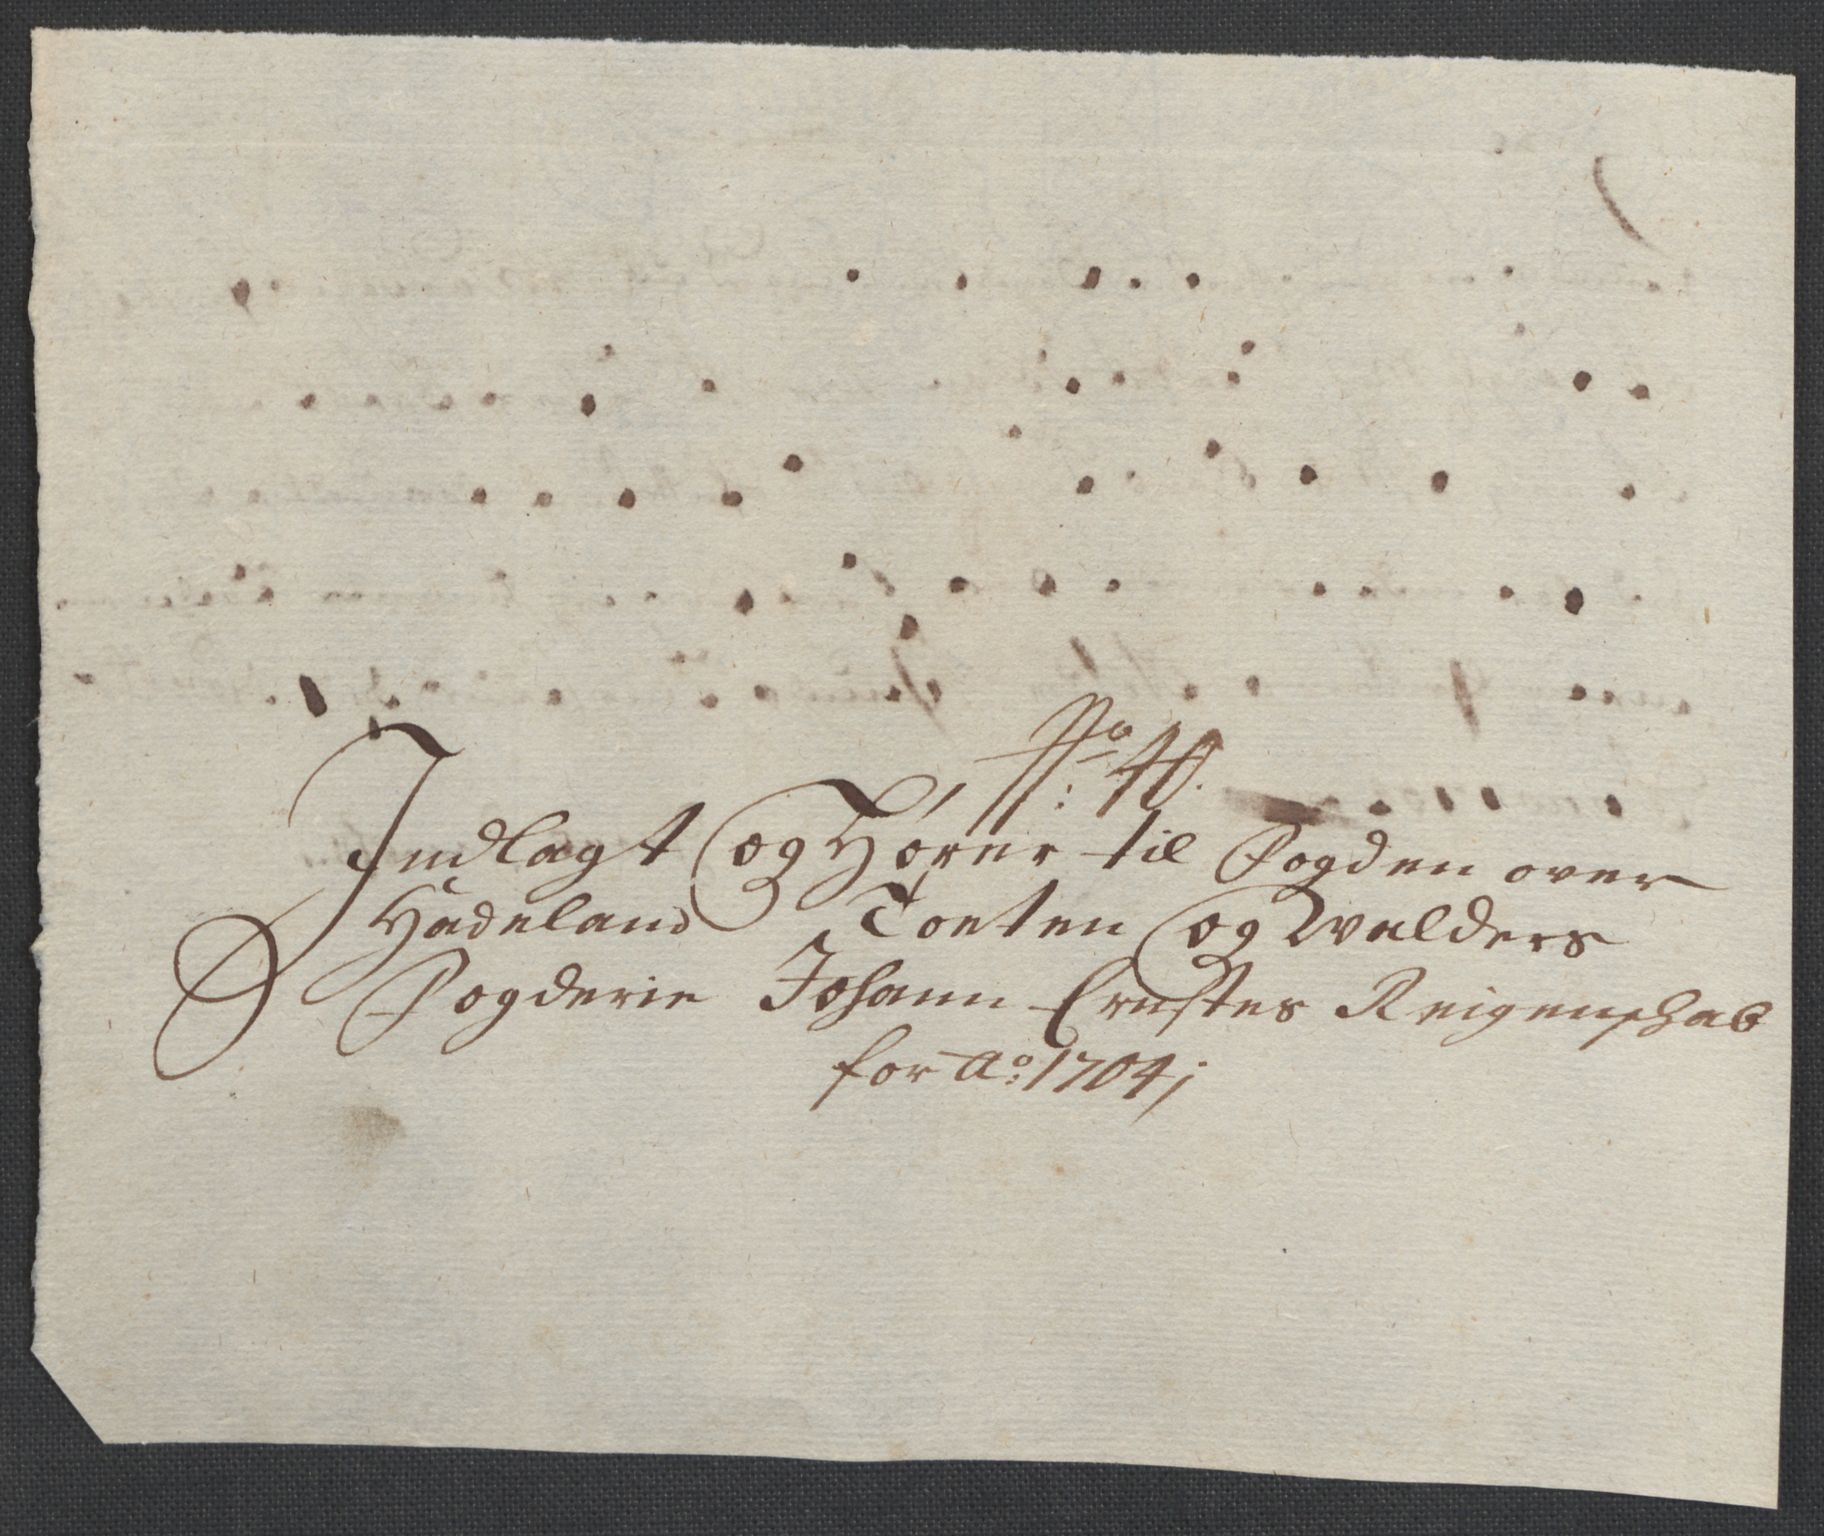 No: 40.
Indlagt og Hører til Fogden over
Hadeland Toeten og Walders
Fogderie Johann Ernstes Reigenschab
for Ao: 1704;